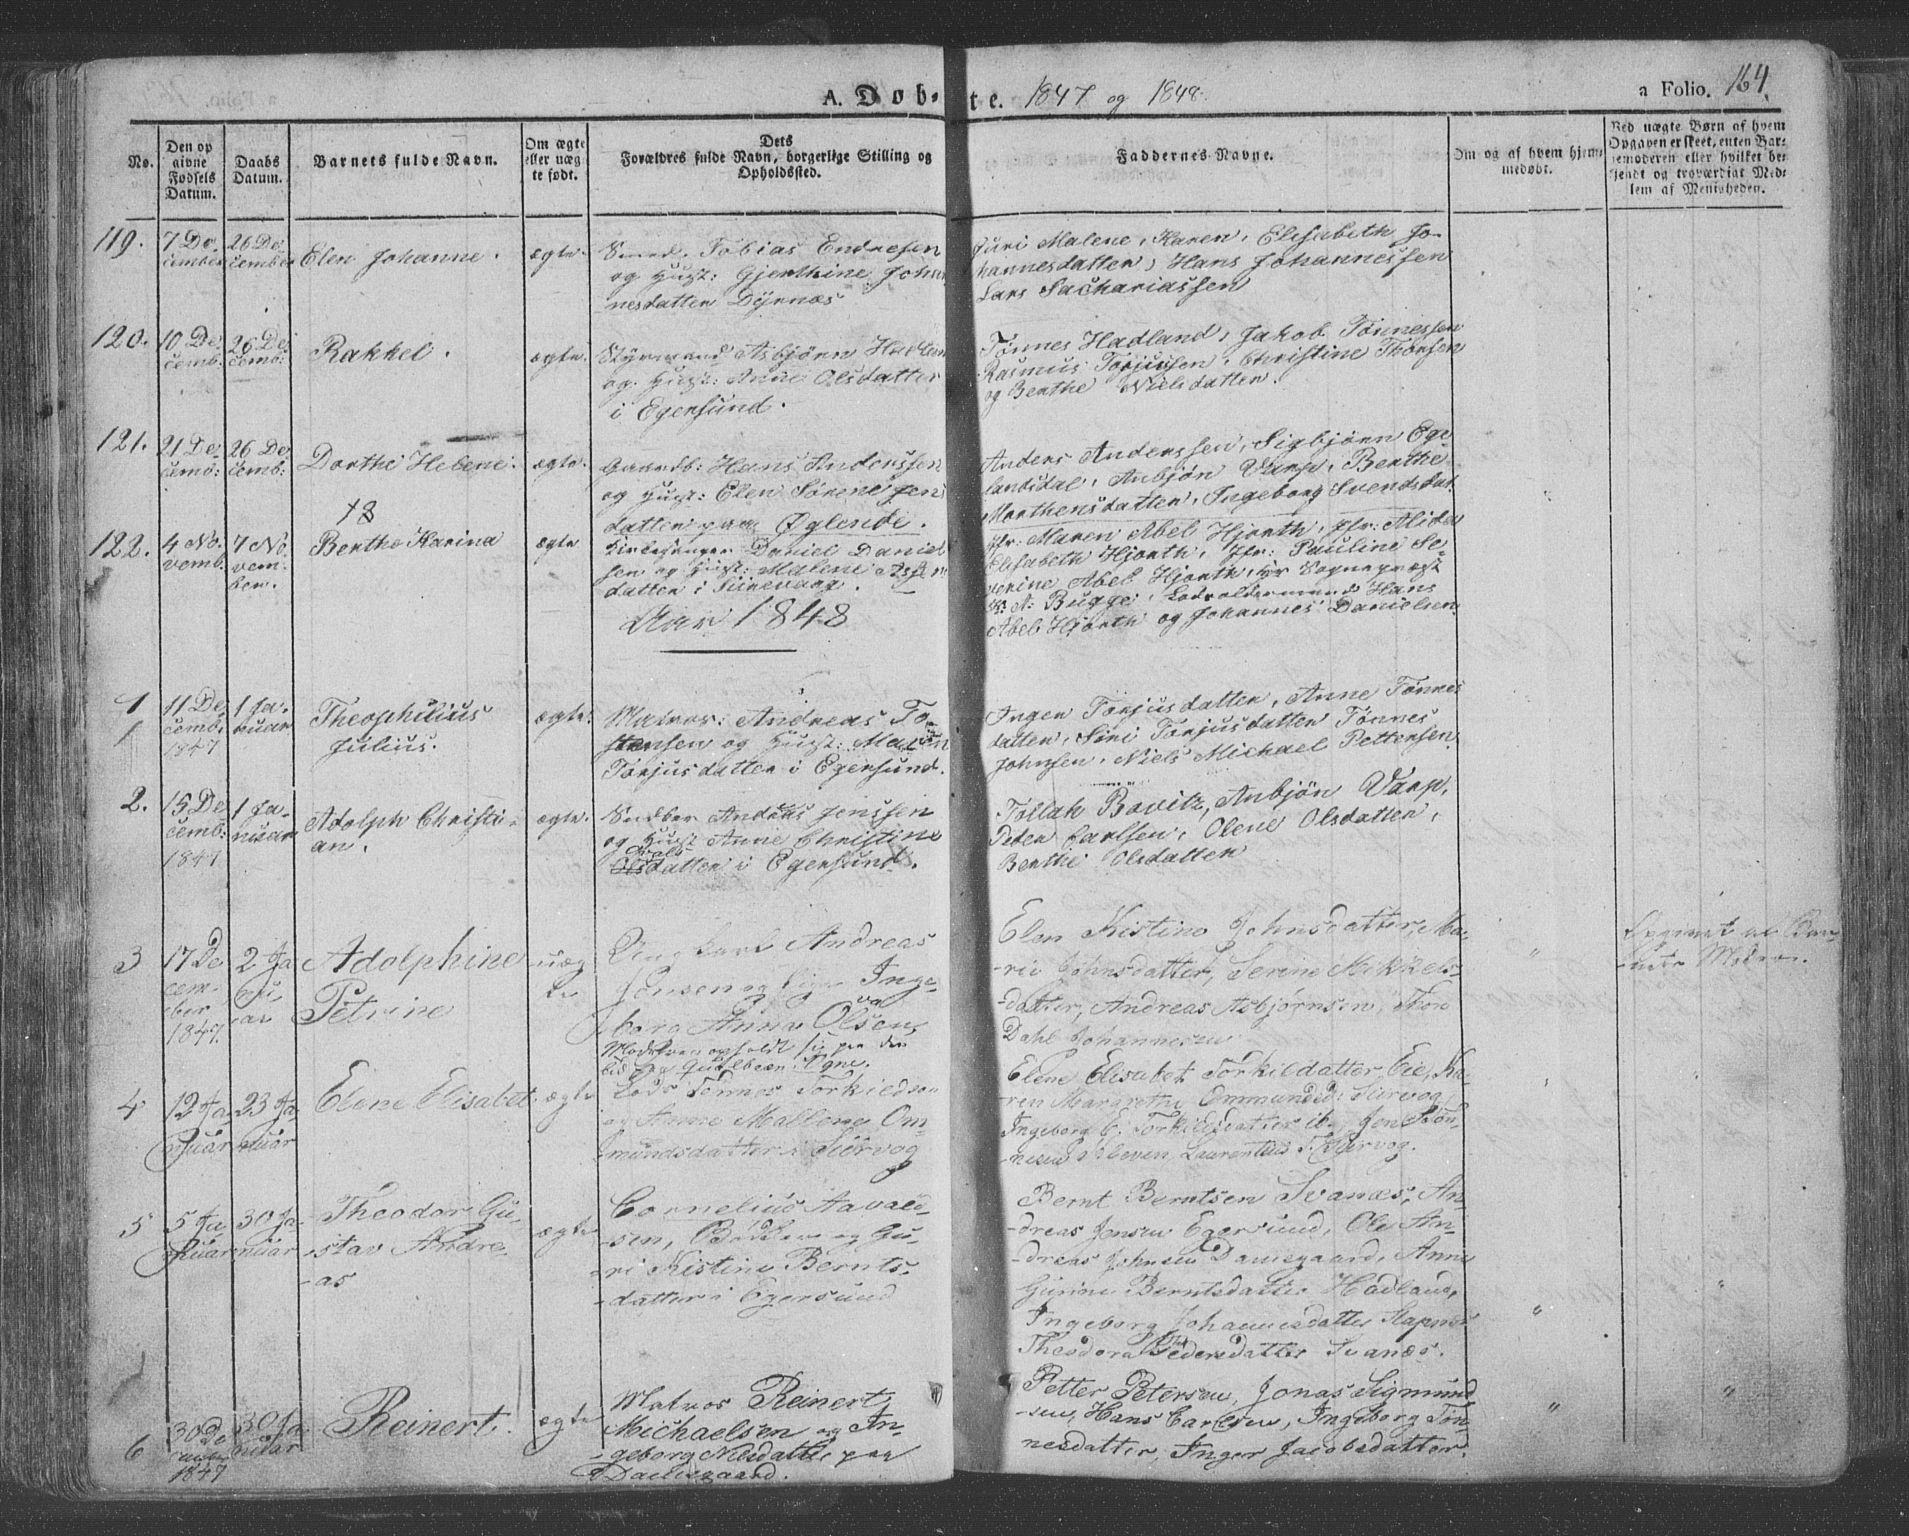 A. Døb- te. 1847 og 1848.
a Folio. 164.
No.
Den op
givne
Fødsels
Datum.
Daabs
Datum.
Barnets fulde Navn.
Om ægte
eller uæg
te født.
Dets
Forældres fulde Navn, borgerlige Stilling og
Opholdssted.
Faddernes Navne.
Om og af hvem hjem-
medøbt.
Ved uægte Børn af hvem
Opgaven er skeet, enten Bar-
nemoderen eller hvilket be-
kjendt og troværdigt Med-
lem af Menigheden.
119.
7 De
cember
26 De
cember
Elen Johanne.
ægte.
Smed. Tobias Endresen
og Hust: Gjerthine Johan
nesdatter Dyrnæs
Juri Malene, Karen, Elisabeth Jo-
hannesdatter, Hans Johannessen
Lars Sachariassen
120.
10 De
cemb.
26 De
cemb:
Rakkel.
ægte.
Styrmand Asbjørn Hadland
og Hust: Anne Olsdatter
i Egersund.
Tønnes Hadland, Jakob Tønnessen
Rasmus Torjussen, Christine Thorsen
og Berthe Nielsdatter.
121.
21 De
cemb:
26 De
cemb:
Dorthe Helene.
ægte.
Gaardb: Hans Anderssen
og Hust: Elen Sørene Jens
datter paa Øglende.
Anders Anderssen, Sigbjørn Ege-
landsdal, Anbjøn Varp, Berthe
Morthensdatter, Ingeborg Svendsdat
122.
4 No
vemb.
7 No
vem-
ber.
Berthe Karina
ægte
Kirkesanger Daniel Daniel
sen og Hust: Malene Asbn
datter i Sirevaag.
Jfr: Maren Abel Hjorth, Jfr: Alida
Elisabeth Hjorth, Jfr: Pauline Se-
verine Abel Hjorth, Hr Sognepræst
A: Bugge, Lodsoldermand Hans
Abel Hjorth og Johannes Danielsen.
Aar 1848
1
1
11 De
cemb.
1847
1 Ja.
nuar
Theophilius
Julius.
ægte.
Matros: Andreas To
stensen og Hust: Maren
Torjusdatter i Egersund.
Inger Torjusdatter, Anne Tønnes
datter, Siri Torjusdatter Tønnes
Johnsen, Niels Michael Pettersen
2.
15 De
cemb
1847
1 Ja-
nuar
Adolph Christi-
an.
ægte.
Snedker Anders Jenssen
og Hust Anne Christine
Olsdatter i Egersund.
Tollak Bovitz, Anbjøn Varp,
Peder Carlsen, Olene Olsdatter,
Berthe Olsdatter
3
17 De
cem-
ber
1847.
2 Ja
nu-
ar
Adolphine
Petrine
uæg
te
Ungkarl Andreas
Jonsen og Pige Inge-
borg Anna Olsen,
Elen Kistine Johnsdatter, Ma-
rie Johnsdatter, Serine Mikkels-
datter, Andreas Asbjørnsen, Thor
Dahl Johannesen
"
Opgivet af Bar-
nets Moder.
4
12 Ja
nuar
23 Ja
nuar
Elene Elisabet
ægte
Lods Tønnes Torkildsen
og Anne Mallene Om-
mundsdatter i Sirevog
Elene Elisabet Torkildatter Eie, Ka-
ren Margrethe Ommundsd: Sirvog
Ingeborg E. Torkildsdatter ib. Jon Tøn-
nesen Kleven, Laurentius
5
5 Ja
nuar
30 Ja
nuar
Theodor Gu-
stav Andre-
as
ægte
Cornelius Aavald-
sen, Bødker og Gu-
ri Kistine Bernts-
datter i Egersund
Bernt Berntsen Svanæs, An-
dreas Jensen Egersund, Ole An-
dreas Johnsen Damsgaard, Anne
Gurine Berntsdatter Hadland,
Ingeborg Johannesdatter
Theodora Pedersdatter Svanæs.
"
"
6
30 De
cember
1847
30 Ja
nuar
Reinert.
ægte
Matros Reinert
Michaelsen og In-
geborg Nilsdatter paa
Damsgaard.
Petter Petersen, Jonas Sigmund
sen, Hans Carlsen, Ingeborg Tøn-
nesdatter, Inger Jacobsdatter.
"
"